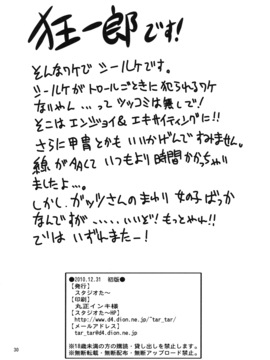 狂一郎です!
そんなワケで シールケです。
シールケが トロールごときに 犯られるワケ
ないやん ... って ツッコミは無しで!
そこは エンジョイ & エキサイティングに!!
さらに 甲冑 とかも いいかげんで すみません。
線が 多くて いつもより時間かかっちゃい
ましたよ...。
しかし、ガッツさんの まわり 女の子 ばっか
なんですが、.... いいぞ! もっとやれ!!
では いずれまたー!
●2010.12.31 初版●
【発行】
スタジオたー
【印刷】
丸正インキ様
【スタジオたーHP】
http://www.d4.dion.ne.jp/~tar_tar/
【メールアドレス】
tar_tar@d4.dion.ne.jp
※18歳未満の方の購読・貸し出しを禁止します。
※無断転載・無断配布・無断アップロード禁止。
30